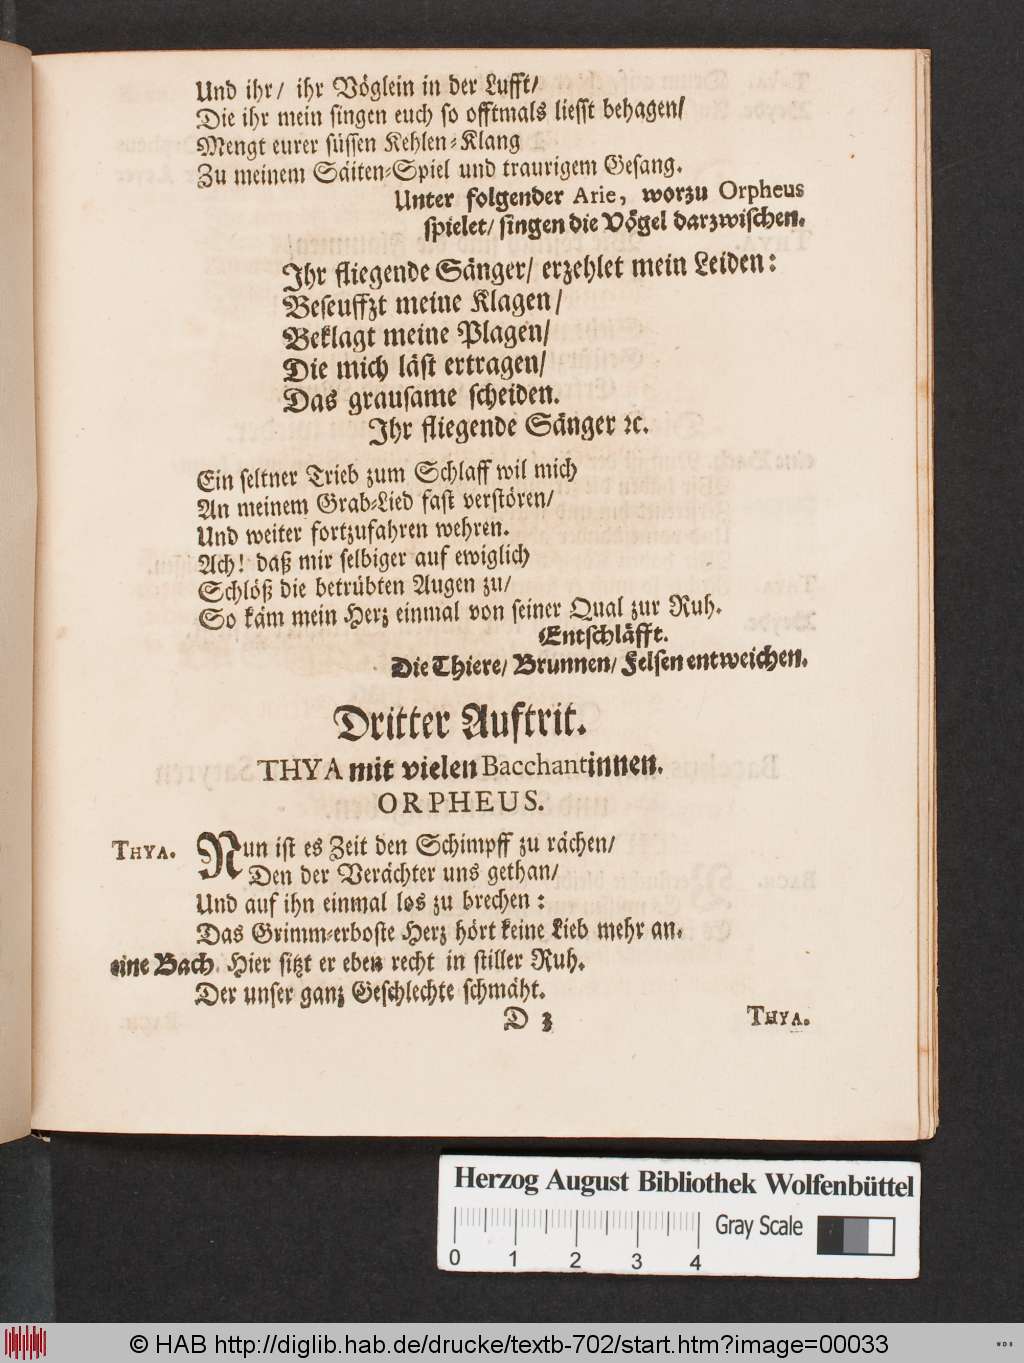 Und ihr/ ihr Vöglein in der Lufft/
Die ihr mein singen euch so offtmals liesst behagen/
Mengt eurer süssen Kehlen-Klang
Zu meinem Säiten-Spiel und traurigem Gesang.
Unter folgender Arie, worzu Orpheus
spielet/ singen die Vögel darzwischen.
Ihr fliegende Sänger/ erzehlet mein Leiden:
Beseuffzt meine Klagen/
Beklagt meine Plagen/
Die mich läst ertragen/
Das grausame scheiden.
Ihr fliegende Sänger ꝛc.
Ein seltner Trieb zum Schlaff wil mich
An meinem Grab-Lied fast verstören/
Und weiter fortzufahren wehren.
Ach! daß mir selbiger auf ewiglich
Schlöß die betrübten Augen zu/
So käm mein Herz einmal von seiner Qual zur Ruh.
Entschläfft.
Die Thiere/ Brunnen/ Felsen entweichen.
Dritter Auftrit.
THYA mit vielen Bacchantinnen.
ORPHEUS.
THYA. Nun ist es Zeit den Schimpff zu rächen/
Den der Verächter uns gethan/
Und auf ihn einmal los zu brechen:
Das Grimm-erboste Herz hört keine Lieb mehr an.
eine Bach. Hier sitzt er eben recht in stiller Ruh.
Der unser ganz Geschlechte schmäht.
D 3 THYA.
Herzog August Bibliothek Wolfenbüttel
Gray Scale
0 1 2 3 4
© HAB http://diglib.hab.de/drucke/textb-702/start.htm?image=00033